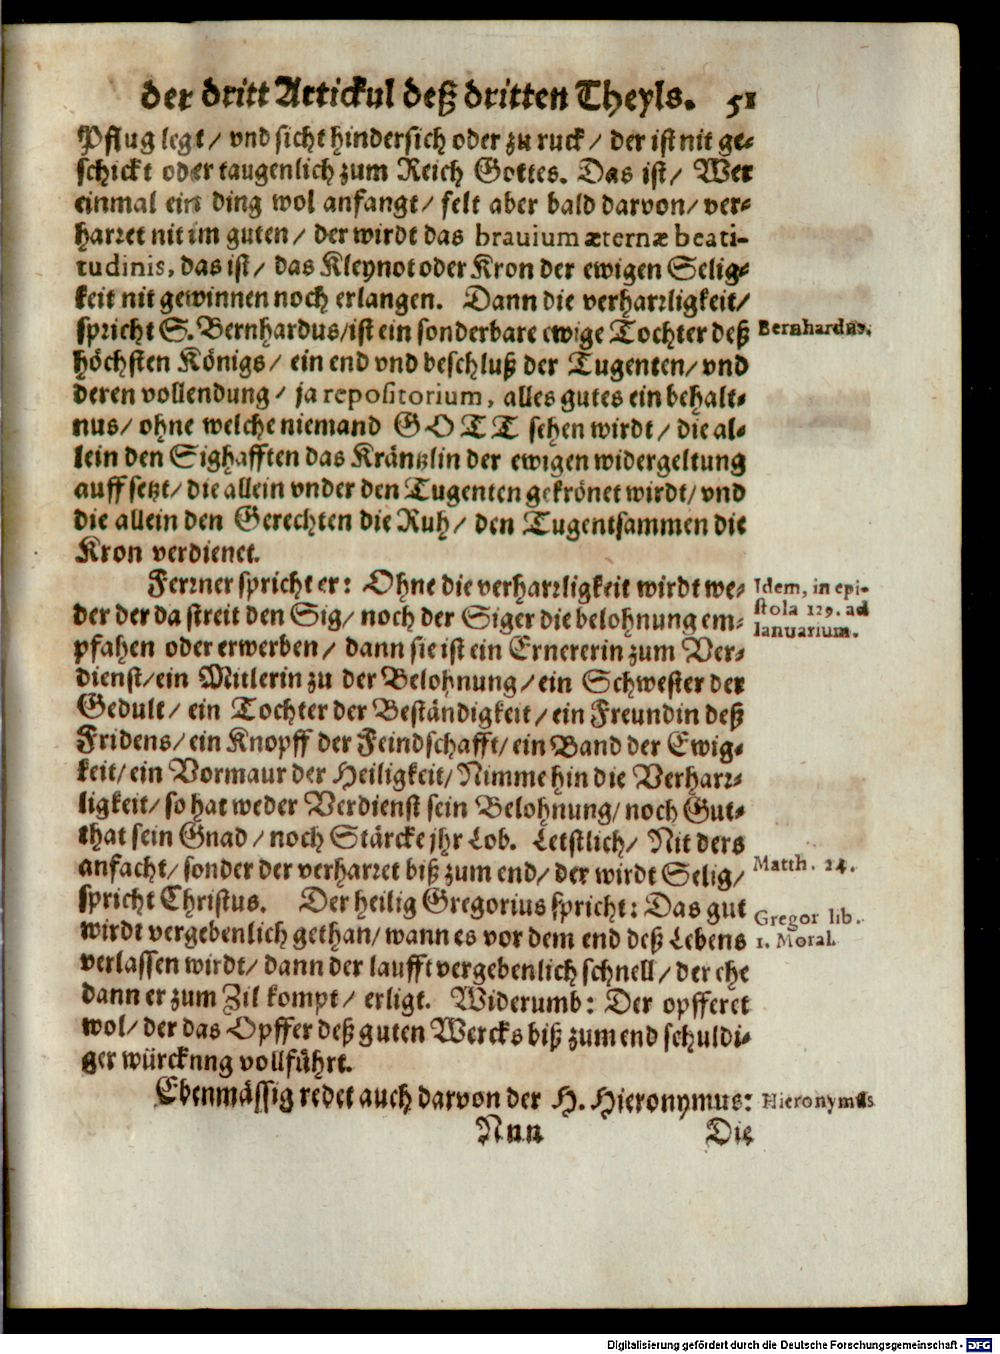 der dritt Artickul deß dritten Theyls. 51
Pflug legt / vnd sicht hindersich oder zu ruck / der ist nit ge-
schickt oder taugenlich zum Reich Gottes. Das ist / Wer
einmal ein ding wol anfangt / felt aber bald darvon / ver-
harret nit im guten / der wirdt das bravium æternæ beati-
tudinis, das ist / das Kleynot oder Kron der ewigen Selig-
keit nit gewinnen noch erlangen. Dann die verharrligkeit /
spricht S. Bernhardus / ist ein sonderbare ewige Tochter deß
Bernhardus.
höchsten Königs / ein end vnd beschluß der Tugenten / vnd
deren vollendung / ja repositorium, alles gutes ein behalt-
nus / ohne welche niemand GOTT sehen wirdt / die al-
lein den Sighafften das Kräntzlin der ewigen widergeltung
auff setzt / die allein vnder den Tugenten gekrönet wirdt / vnd
die allein den Gerechten die Ruh / den Tugentsammen die
Kron verdienet.
Ferrner spricht er: Ohne die verharrligkeit wirdt we-
der der da streit den Sig / noch der Siger die belohnung em-
pfahen oder erwerben / dann sie ist ein Ernererin zum Ver-
Idem, in epi-
stola 129. ad
Ianuarium.
dienst / ein Mitlerin zu der Belohnung / ein Schwester der
Gedult / ein Tochter der Beständigkeit / ein Freundin deß
Fridens / ein Knopff der Feindschafft / ein Band der Ewig-
keit / ein Vormaur der Heiligkeit / Nimme hin die Verharr-
ligkeit / so hat weder Verdienst sein Belohnung / noch Gut-
that sein Gnad / noch Stärcke jhr Lob. Letstlich / Nit ders
anfacht / sonder der verharret biß zum end / der wirdt Selig /
Matth. 24.
spricht Christus. Der heilig Gregorius spricht: Das gut
wirdt vergebenlich gethan / wann es vor dem end deß Lebens
Gregor lib.
1. Moral.
verlassen wirdt / dann der laufft vergebenlich schnell / der ehe
dann er zum Zil kompt / erligt. Widerumb: Der opfferet
wol / der das Opffer deß guten Wercks biß zum end schuldi-
ger würcknng vollführt.
Ebenmässig redet auch darvon der H. Hieronymus:
Hieronymus
Nnn Die
Digitalisierung gefördert durch die Deutsche Forschungsgemeinschaft - DFG